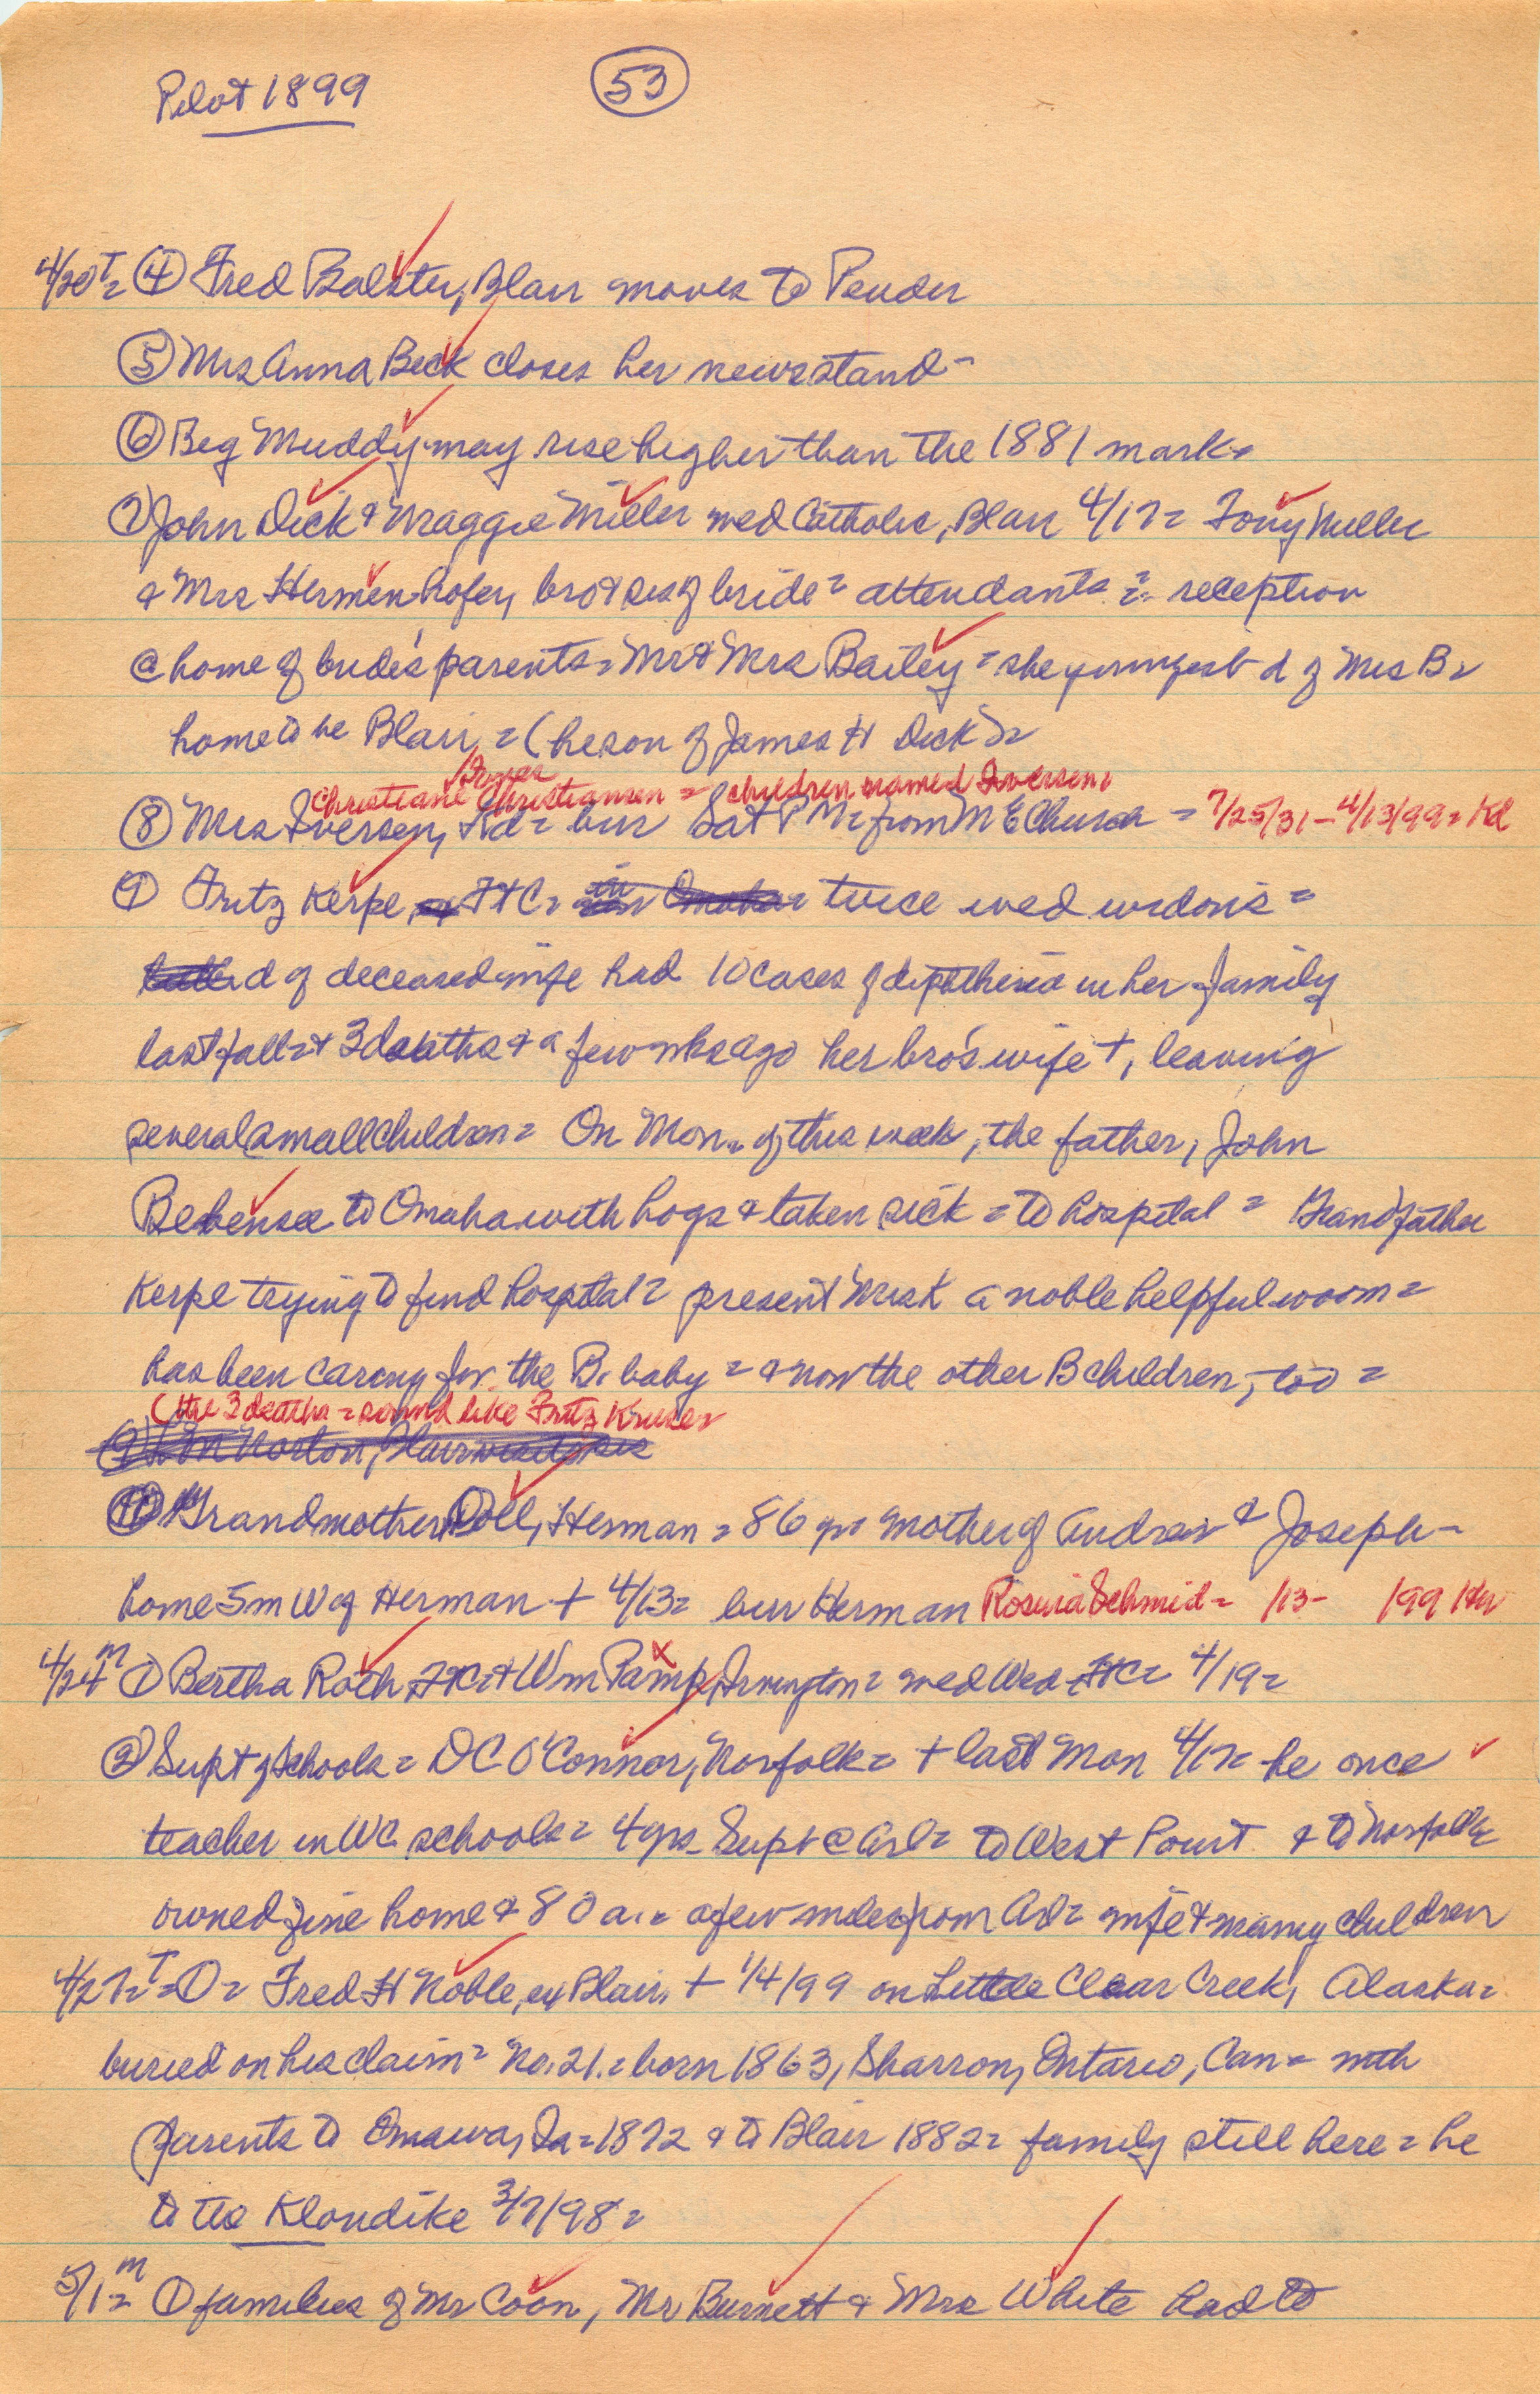 Pilot 1899
53
4/20 T = ④ Fred Balster, Blair moves to Pender
⑤ Mrs Anna Beck closes her newsstand -
⑥ Big Muddy may rise higher than the 1881 mark =
⑦ John Dick & Maggie Miller wed Catholic, Blair 4/17 = Tony Miller
& Mrs Hermen hofer, bro & sis of bride = attendants = reception
@ home of bride's parents = Mr & Mrs Bailey = she youngest d of Mrs B =
home to be Blair = (he son of James H Dick) =
Christiane Christiansen = children named Iversen =
⑧ Mrs Iversen, Kd = bur Sat PM = from M E Church = 7/25/31 - 4/13/99 = Kd
⑨ Fritz Kerpe, FtC = twice wed widows =
d of deceased wife had 10 cases of diphtheria in her family
last fall = & 3 deaths & a few wks ago her bro's wife +, leaving
several small children = On Mon. of this week, the father, John
Bebensee to Omaha with hogs & taken sick = to hospital = Grandfather
Kerpe trying to find hospital = present Mrs K a noble helpful woom =
has been caring for the B. baby = & now the other B children, too =
(the 3 deaths = sound like Fritz Kruses
⑩ Grandmother Doll, Herman = 86 yrs mother of Andrew & Joseph -
home 5m W of Herman + 4/13 = bur Herman Rosina Schmid = /13 - /99 Hr
4/24 M ① Bertha Roth, FtC & Wm Pamp, Irvington = wed Wed FtC = 4/19 =
② Supt of Schools = D C O'Connor, Norfolk = + last Mon 4/17 = he once
teacher in WC schools = 4 yrs Supt @ Arl = to West Point & to Norfolk
owned fine home & 80 a. = a few miles from Arl = wife & many children
4/27 = T = ① = Fred H Noble, ex Blair, + 1/4/99 on Little Clear Creek, Alaska =
buried on his claim = No. 21. = born 1863, Sharron, Ontario, Can = with
parents to Onawa, Ia = 1872 & to Blair 1882 = family still here = he
to the Klondike 3/7/98 =
5/1 = M ① families of Mr Coon, Mr Burnett & Mrs White had to